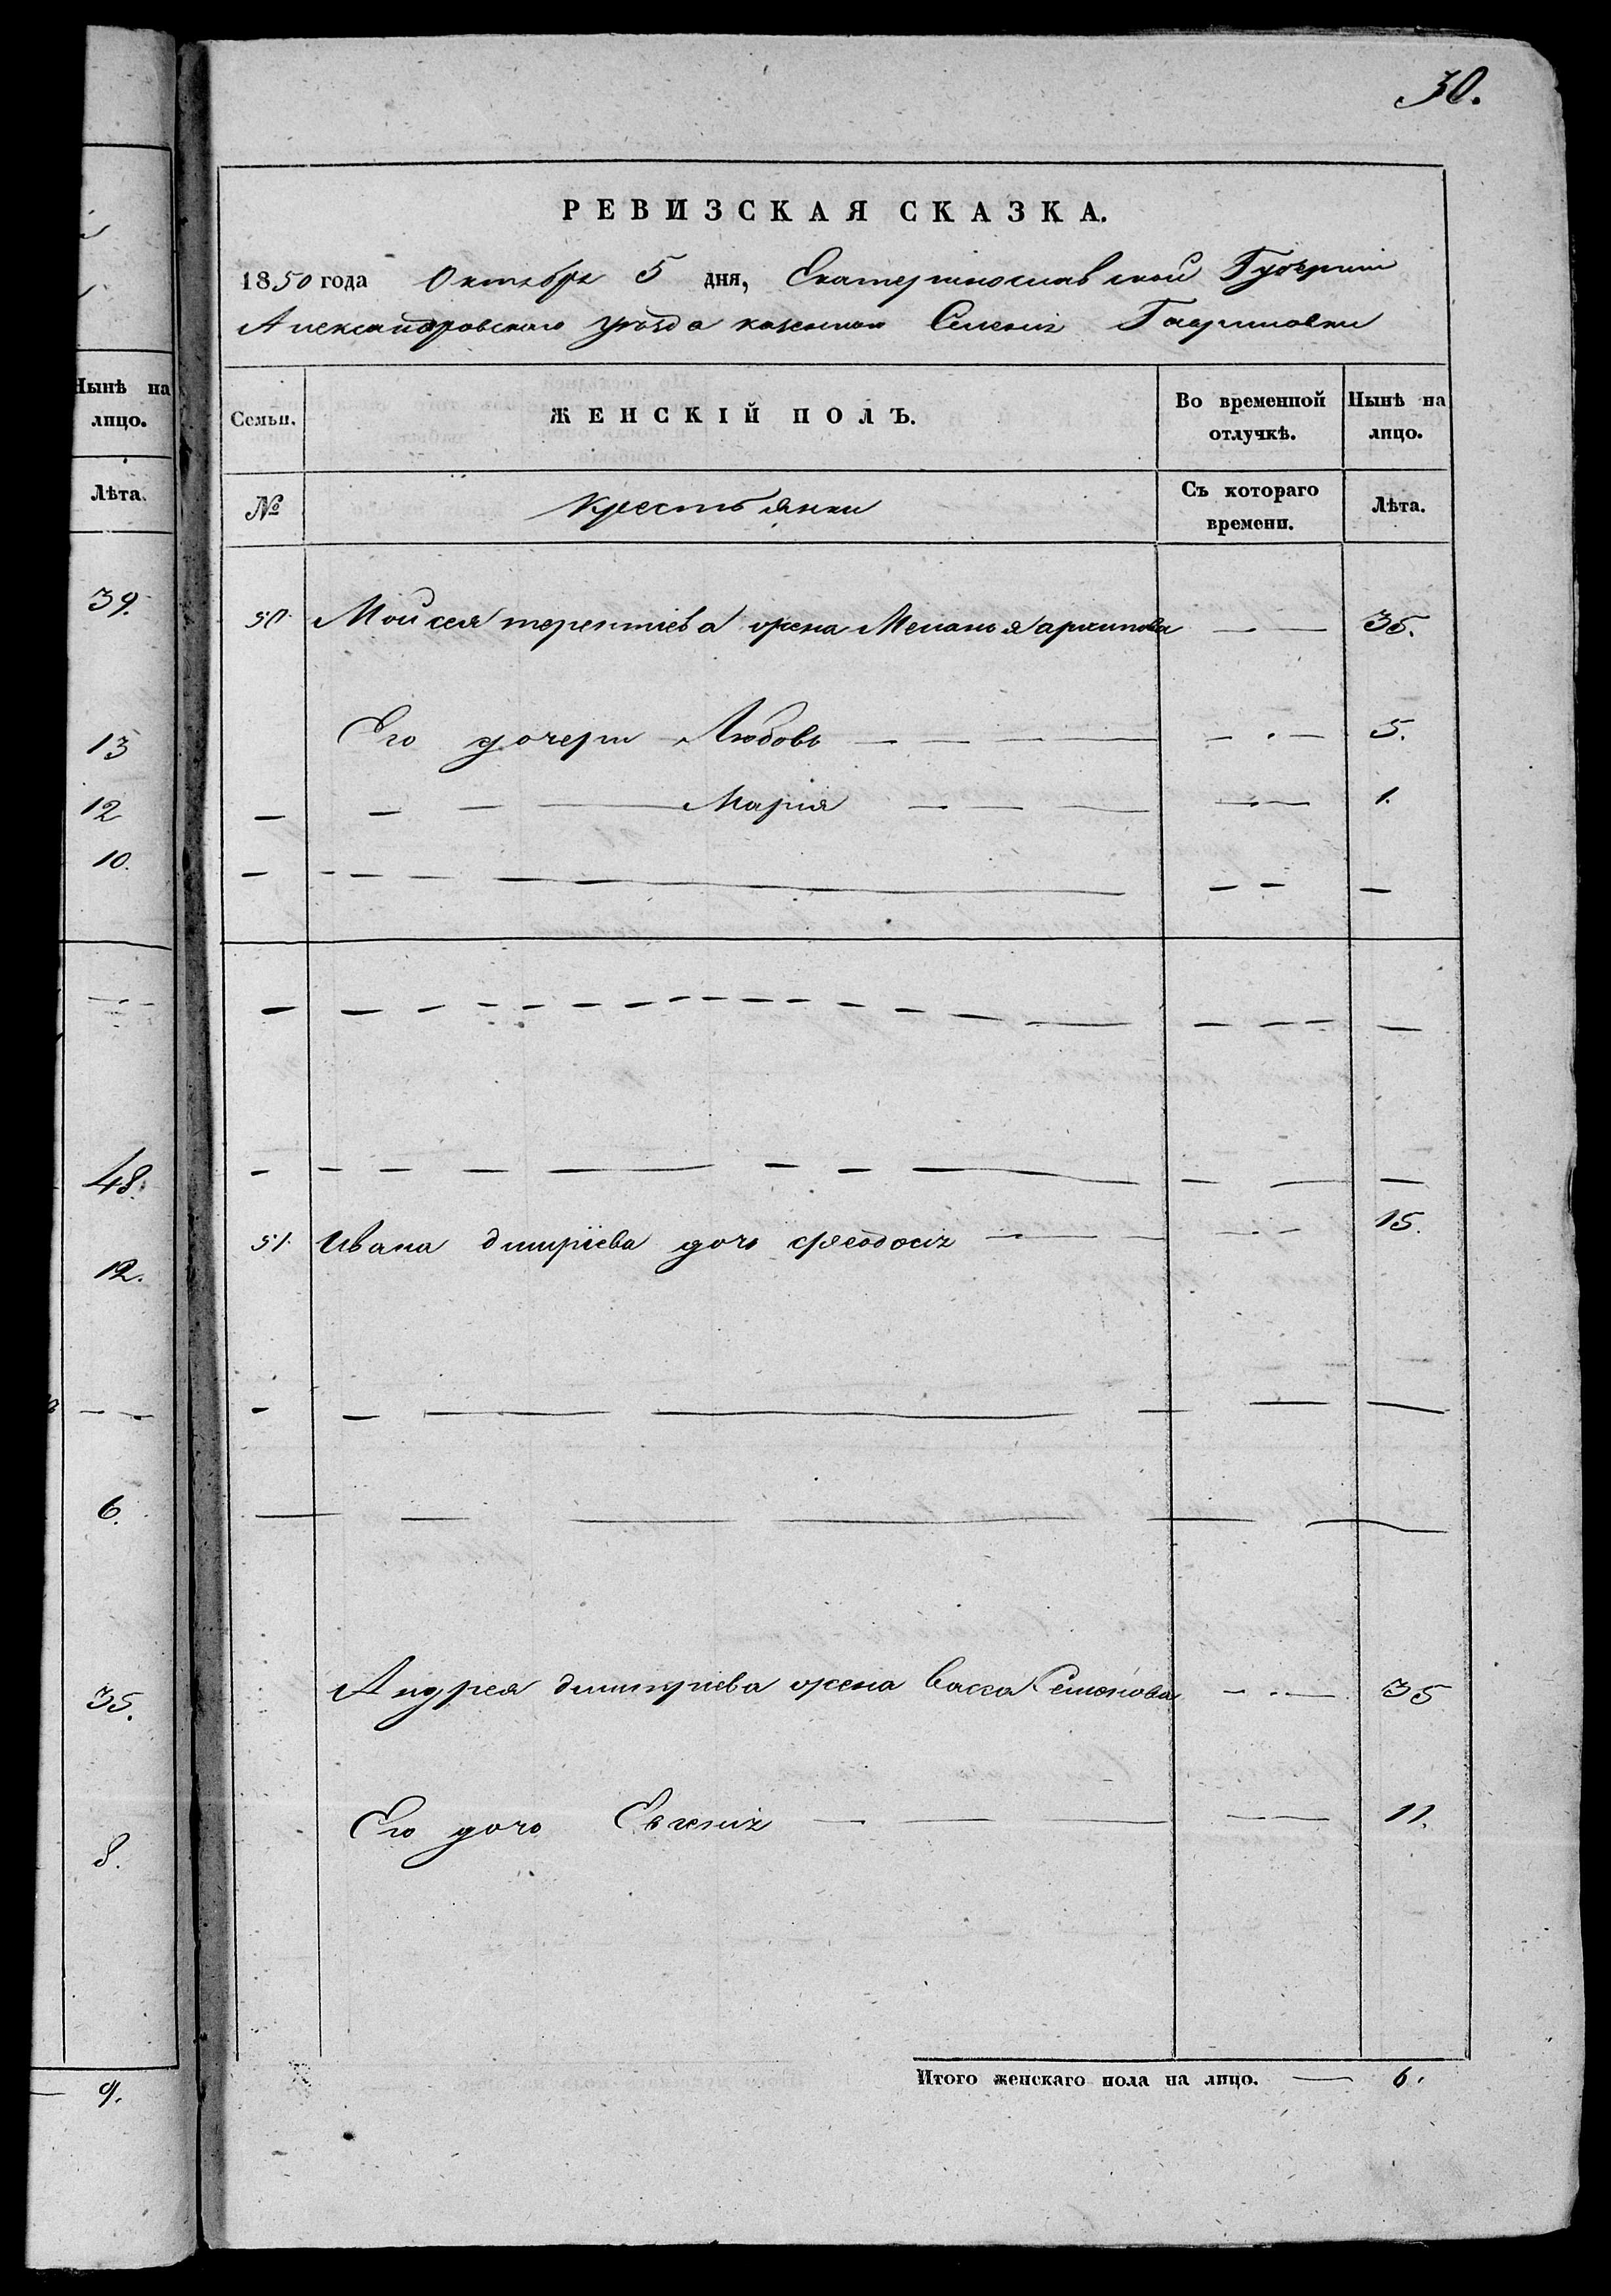 30.
РЕВИЗСКАЯ СКАЗКА.
1850 года Октября 5 дня, Екатеринославской Губернии
Александровского уѣзда казенного Селенія Гавриловки
Нынѣ на лицо.
Лѣта.
39.
13
12
10.
48.
12.
6.
35.
8.
9.
Семьи. ЖЕНСКІЙ ПОЛЪ. Во временной отлучкѣ. Нынѣ на лицо.
№ Крестьянки Съ котораго времени. Лѣта.
50. Мойсея терентіева жена Меланья архипова — — 35.
Его дочери Любовь — — — — — . — 5.
— — — — Марія — — — — — 1.
51. Ивана димтріева дочь феодосія — — — — — 15.
Андрея димитріева жена Васса Семенова — . — 35
Его дочь Евгенія — — — — 11.
Итого женскаго пола на лицо. — 6.